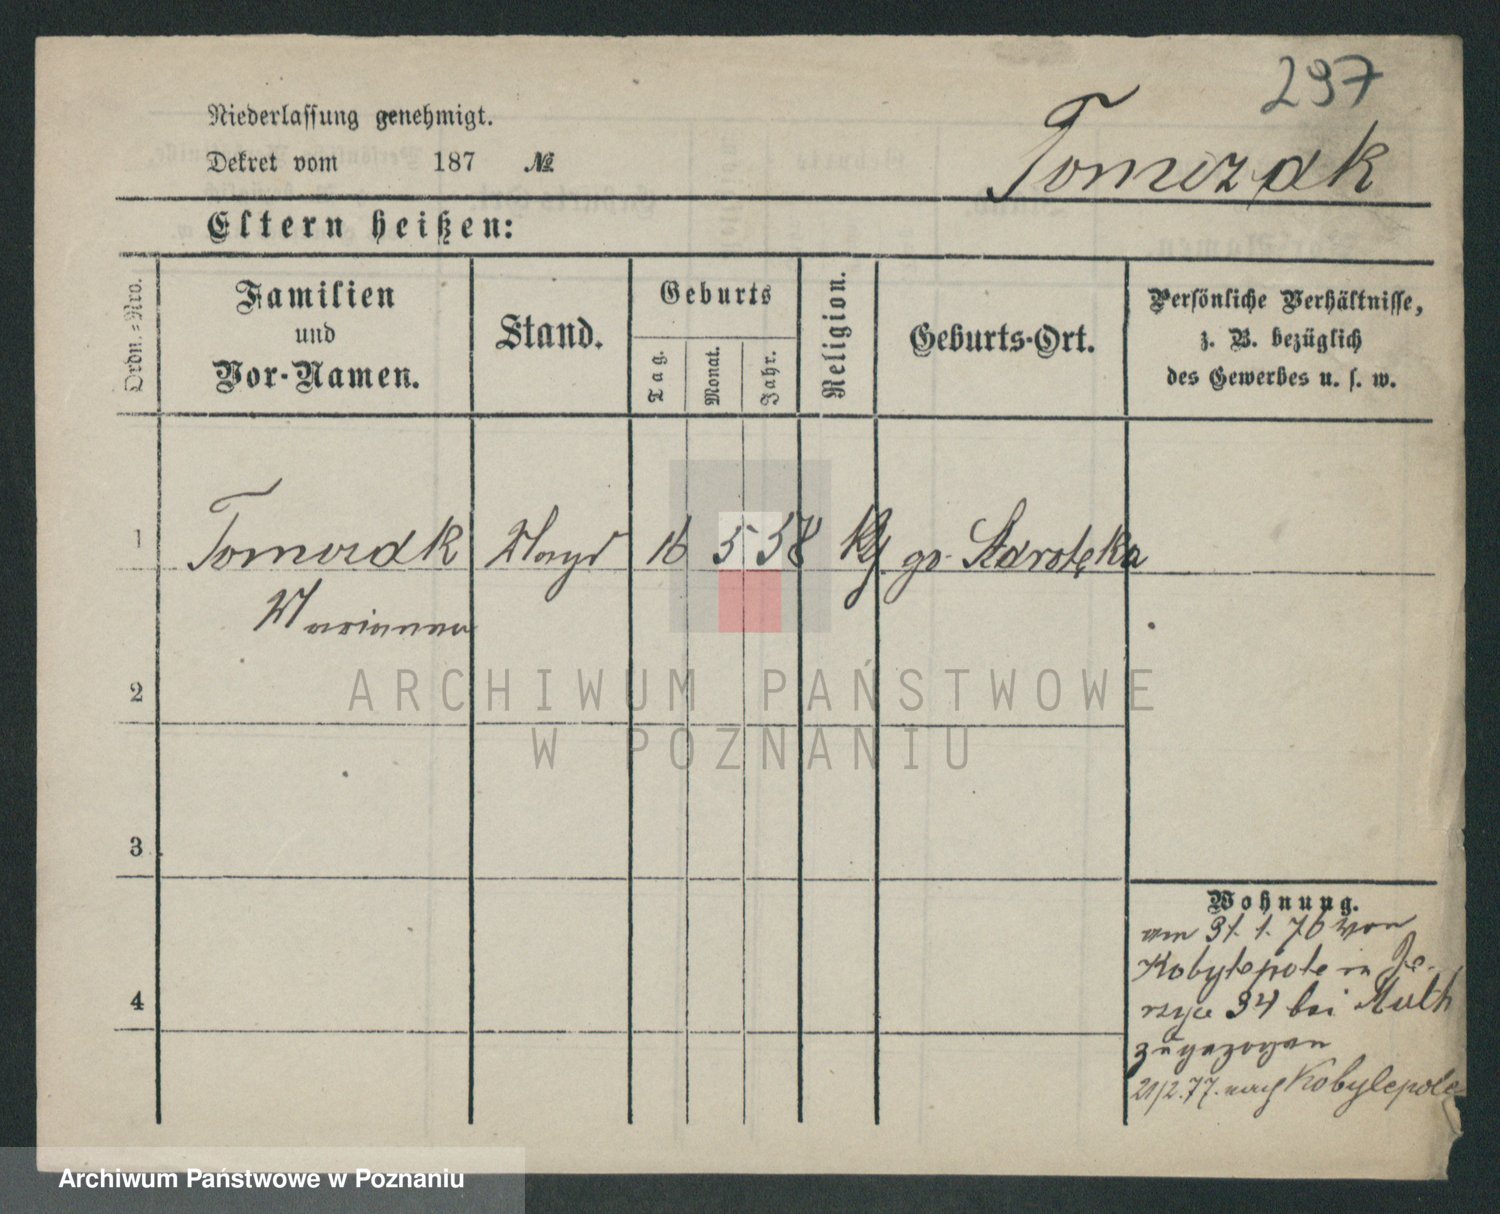 297
Niederlassung genehmigt.
Dekret vom 187 №
Tomczak
Eltern heißen:
Ordn.=Nro.
Familien
und
Vor-Namen.
Stand.
Geburts
Tag.
Monat.
Jahr.
Religion.
Geburts-Ort.
Persönliche Verhältnisse,
z. B. bezüglich
des Gewerbes u. s. w.
1 Tomczak Magd 16 5 58 gr. Starołęka
Marianna
2
3
4
Wohnung.
am 31. 1. 76 von
Kobylepole in Je-
rsyce 34 bei Muth
zugezogen
21/2.77. nach Kobylepole
ARCHIWUM PAŃSTWOWE
W POZNANIU
Archiwum Państwowe w Poznaniu